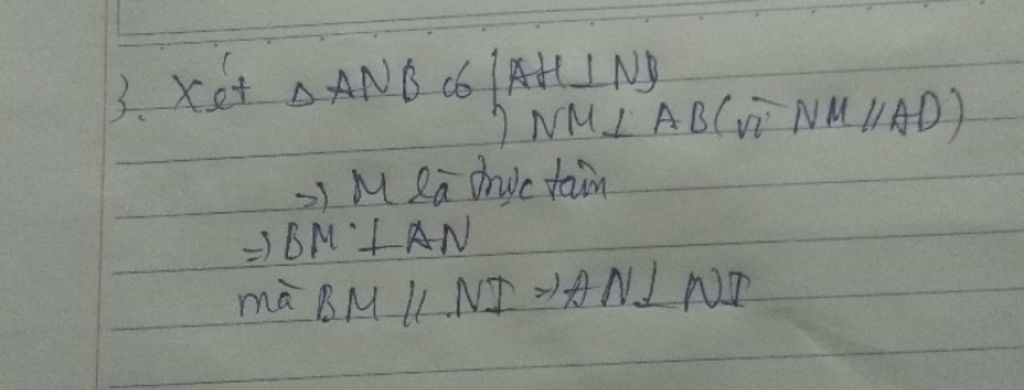 3. Xét △ANB có { AH ⊥ NB
NM ⊥ AB (vì NM // AD)
=> M là trực tâm
=> BM ⊥ AN
mà BM // NI => AN ⊥ NI